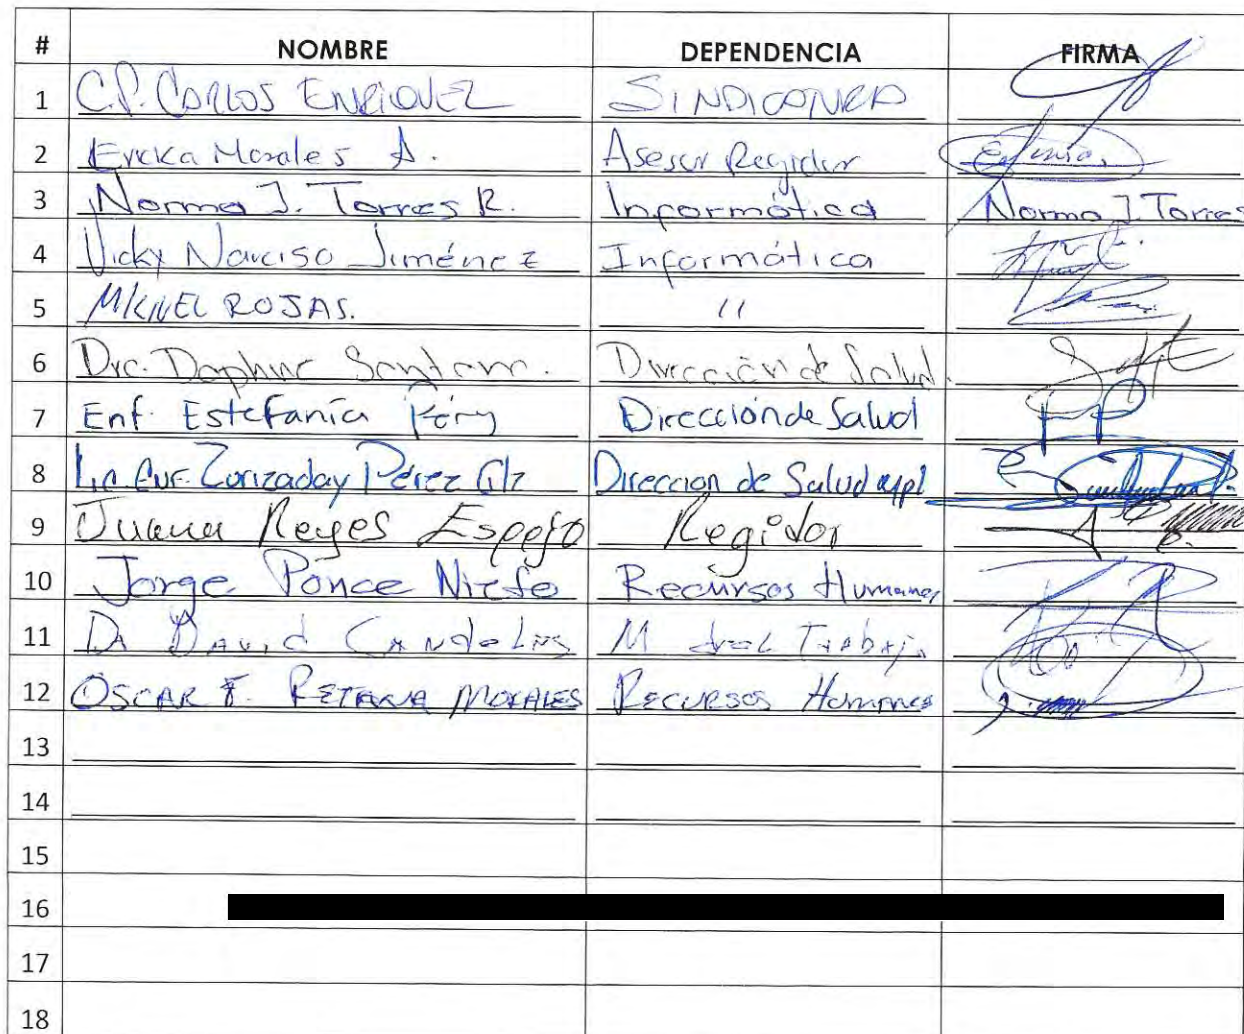 # NOMBRE DEPENDENCIA FIRMA
1 C.P. CARLOS ENRIQUEZ SINDICATURA
2 Ericka Morales A. Asesor Regidur
3 Norma J. Torres R. Informática Norma J. Torres
4 Vicky Narciso Jiménez Informática
5 MIGUEL ROJAS. 11
6 Dra. Daphne Dirección de Salud.
7 Enf. Estefanía Dirección de Salud
8 Lic Enf. Zorizaday Pérez Glz Dirección de Salud mpl
9 Juana Reyes Espejo Regidor
10 Jorge Ponce Nieto Recursos Humanos
11 Dr DAVID CANDELAS M del Trabajo
12 OSCAR F. RETANA MORALES RECURSOS HUMANOS
13
14
15
16
17
18